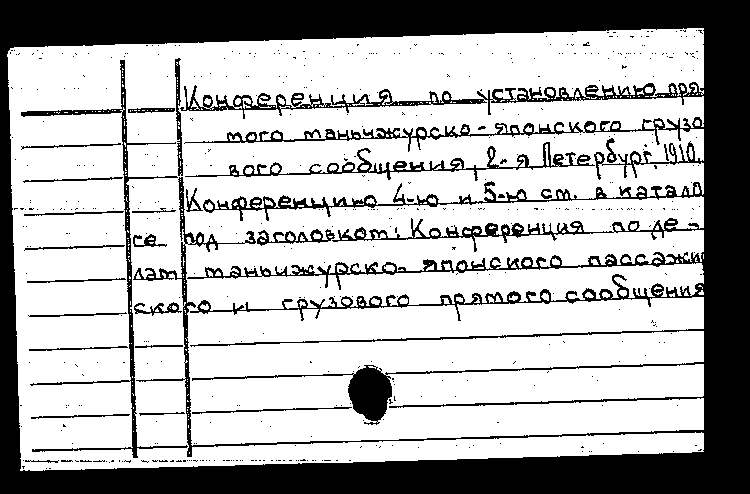 Конференция по установлению пря-
мого маньчжурско-японского грузо
вого сообщения, 2-я Петербург, 1910.
Конференцию 4-ю и 5-ю см. в катало
ге под заголовком: Конференция по де-
лам маньчжурско-японского пассажи
ского и грузового прямого сообщения